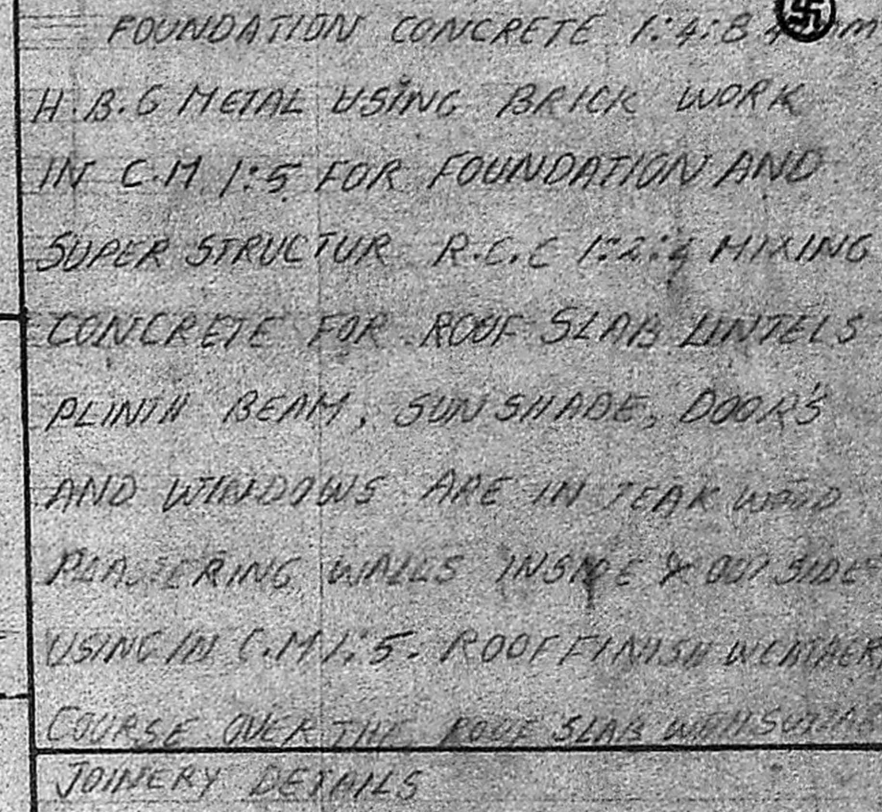 FOUNDATION CONCRETE 1:4:8
H.B.G METAL USING BRICK WORK
IN C.M 1:5 FOR FOUNDATION AND
SUPER STRUCTUR R.C.C 1:2:4 MIXING
CONCRETE FOR ROOF SLAB LINTELS
PLINTH BEAM, SUNSHADE, DOOR'S
AND WINDOWS ARE IN TEAK WOOD
PLASTERING WALLS INSIDE & OUT SIDE
USING IN C.M 1:5. ROOF FINISH WEATHER
COURSE OVER THE ROOF SLAB WITH
JOINERY DETAILS